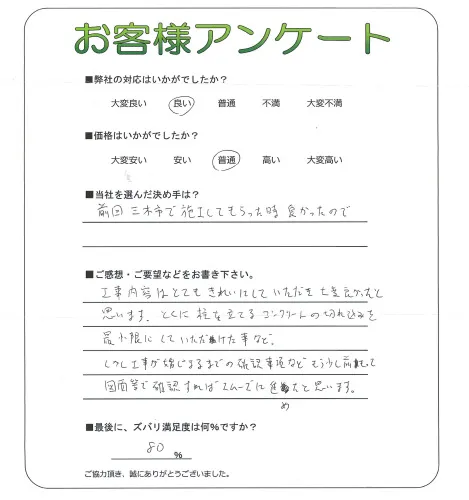 お客様アンケート
■弊社の対応はいかがでしたか?
大変良い 良い 普通 不満 大変不満
■価格はいかがでしたか?
大変安い 安い 普通 高い 大変高い
■当社を選んだ決め手は?
前回三木市で施工してもらった時良かったので
■ご感想・ご要望などをお書き下さい。
工事内容はとてもきれいにしていただき大変良かったと
思います。とくに柱を立てるコンクリートの切れ込みを
最小限にしていただけた事など。
しかし工事が始じまるまでの確認事項などもう少し前もって
図面等で確認すればスムーズに進めたと思います。
■最後に、ズバリ満足度は何%ですか?
80 %
ご協力頂き、誠にありがとうございました。